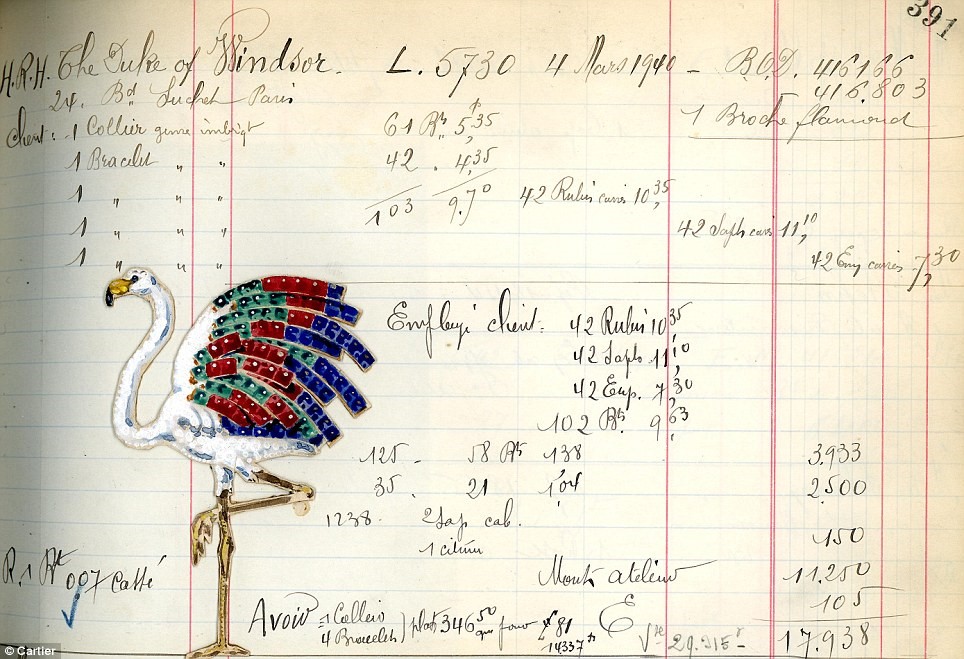 391
H.R.H. The Duke of Windsor. L. 5730 4 Mars 1940 - B.O.D. 416166
24. Bd Suchet Paris 416.803
client: 1 Collier genre imbriqt 61 Bts 5,35 1 Broche flamand
1 Bracelet " " 42 . 4,35
1 " " " 103 9.70 42 Rubis carrés 10,35
1 " " " 42 Saphs carrés 11,10
1 " " " 42 Em carrés 7,30
Employé client: 42 Rubis 10,35
42 Saphs 11,10
42 Em. 7,30
102 Bts 9,63
125 - 58 Bts 1,38 3.933
35 . 21 1,04 2.500
1238. 2 Sap cab. 150
1 citrine
R. 1 Bt 007 Cassé Monts atelier 11.250
105
Avoir 1 Colliers 4 Bracelets ) plat 346,50 pour £ 81 E 17.938
14337 Vte 29.315
© Cartier